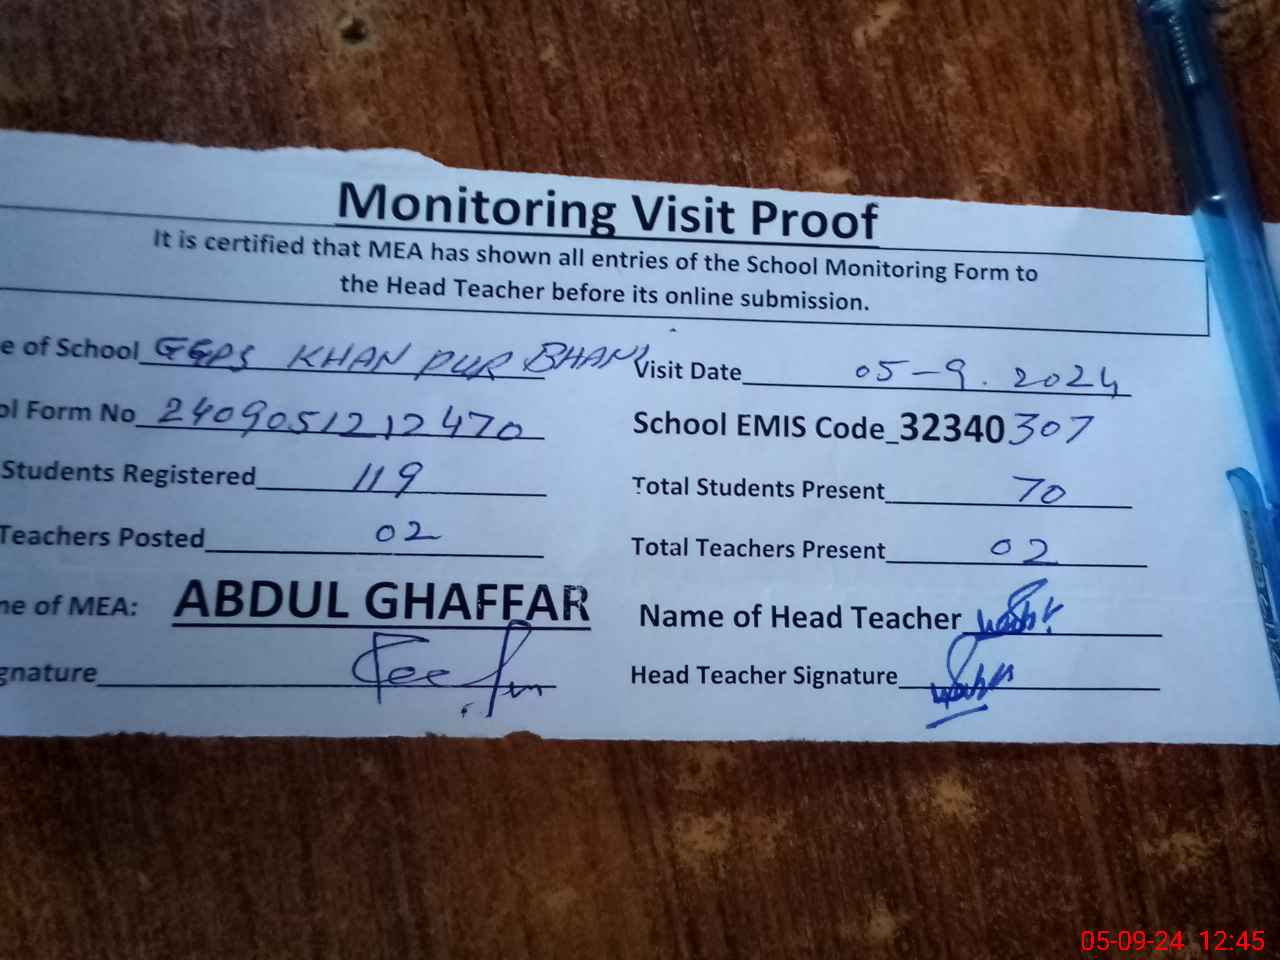 Monitoring Visit Proof
It is certified that MEA has shown all entries of the School Monitoring Form to
the Head Teacher before its online submission.
e of School GGPS KHAN PUR BHANI Visit Date 05-9.2024
ol Form No 2409051212470 School EMIS Code_32340307
Students Registered 119 Total Students Present 70
Teachers Posted 02 Total Teachers Present 02
ne of MEA: ABDUL GHAFFAR Name of Head Teacher
gnature Head Teacher Signature
05-09-24 12:45